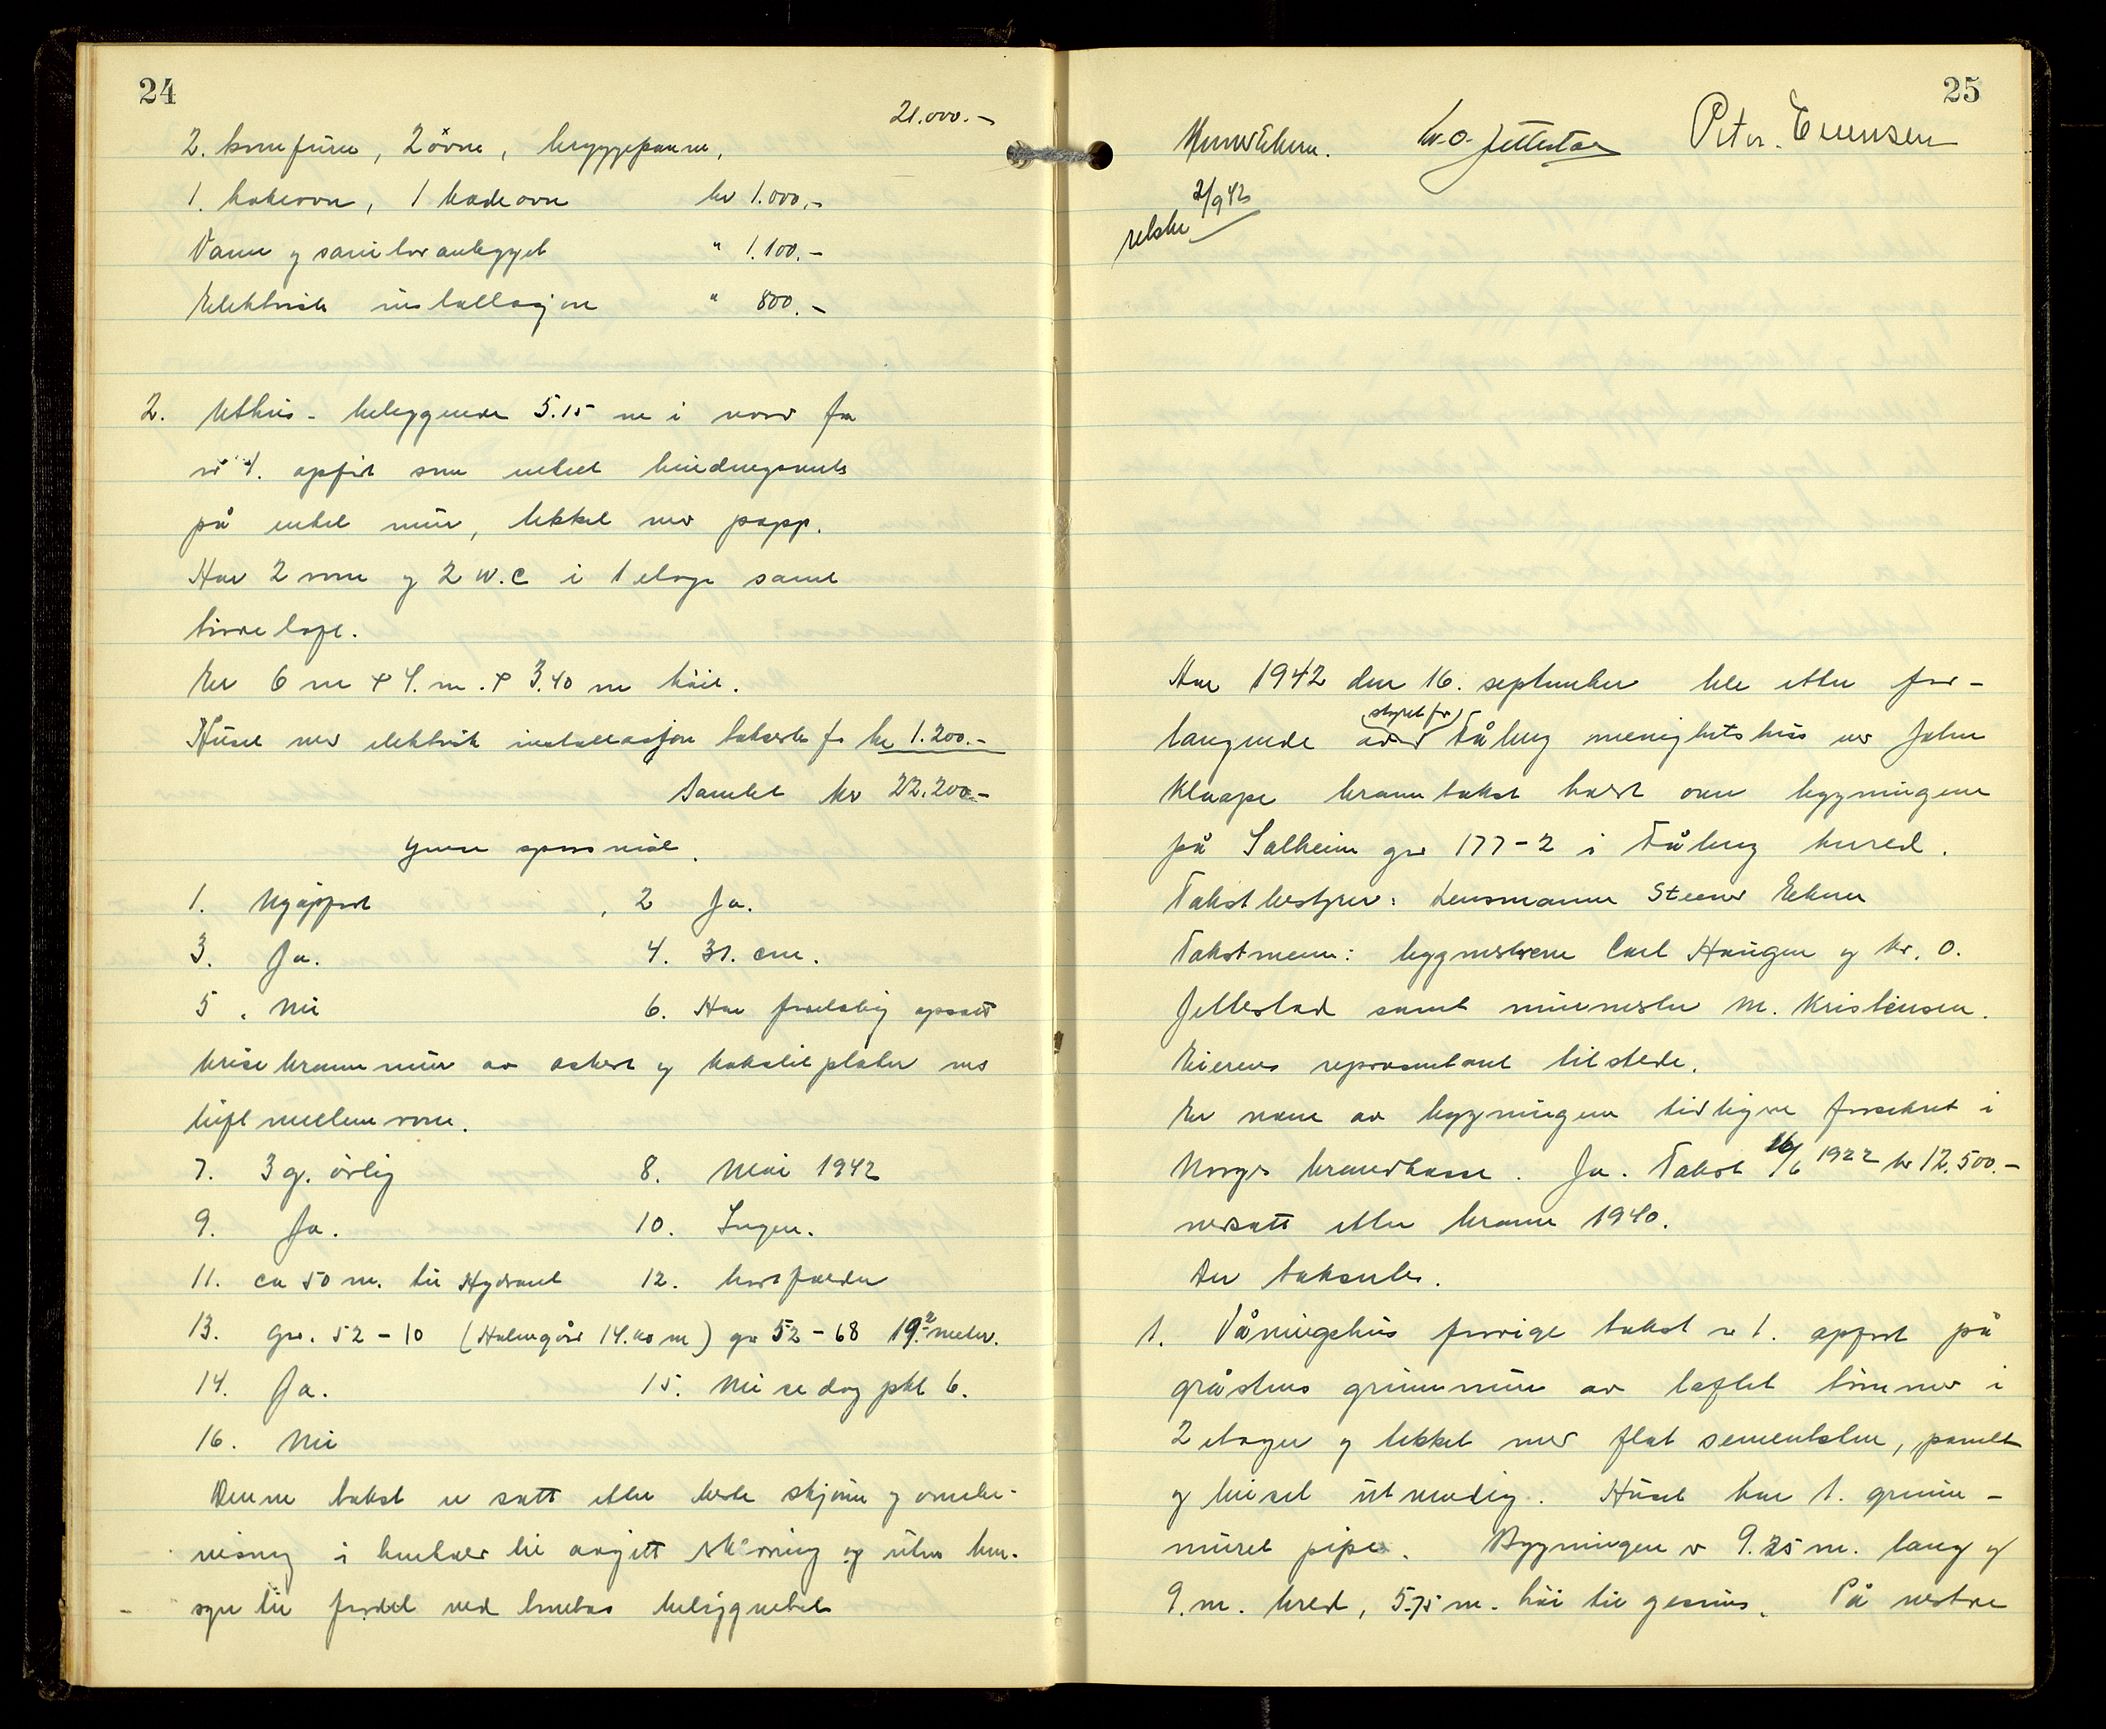 24
21.000.-
2. komfurer, 2 ovne, bryggepanne,
1. bakerovn, 1 badeovn kr 1.000.-
Vann og sanitæranlegget " 1.100.-
Elektrisk installasjon " 800.-
2. Uthus - beliggende 5.15 m i nord fra
nr 1. opført som enkel bindingsverk
på enkel mur, tekket med papp.
Har 2 rom og 2 W.C i 1 etage samt
tørreloft.
Er 6 m + 4. m. + 3.40 m høit.
Huset med elektrisk installasjon takseres for kr 1.200.-
Samlet kr 22.200.-
spørsmål.
1. Nyoppført , 2 Ja.
3. Ja. 4. 31. cm.
5. Nei 6. Har forelabig opsatt
brannmur av asbest og plater med
luft mellemrom.
7. 3 g. årlig 8. Mai 1942
9. Ja. 10. Ingen.
11. ca 50 m. til Hydrant 12.
13. gnr. 52 - 10 (Holmgård 14.40 m) gnr 52 - 68 19.2 meter.
14. Ja. 15. Nei se dog pkt 6.
16. Nei
Denne takst er satt etter beste skjønn og overbe-
visning i henhold til avgitt og uten hen-
syn til fordel ved tomtens beliggenhet
25
Peter Evensen
2/9 42
År 1942 den 16. september ble etter for-
langende av (styret for) Fåberg menighetshus ved John
Klaape branntakst holdt over bygningene
på Solheim gnr 177 - 2 i Fåberg herred.
Takstbestyrer: Lensmann Steener Ekern
Takstmenn: byggmestrene Carl Haugen og Kr. O.
Jettestad samt murmester M. Kristensen.
Eierens representant tilstede.
Er noen av bygningene tidligere forsikret i
Norges brandkasse. Ja. Takst 16/6 1922 kr 12.500.-
nedsatt etter brann 1940.
Der takseres.
1. Våningshus forrige takst nr 1. opført på
gråstens grunnmur av laftet tømmer i
2 etager og tekket med flat sementsten, panelt
og beiset utvendig. Huset har 1. grunn-
muret pipe. Bygningen er 9.25 m. lang og
9. m. bred, 5.75 m. høi til gesims. På vestre